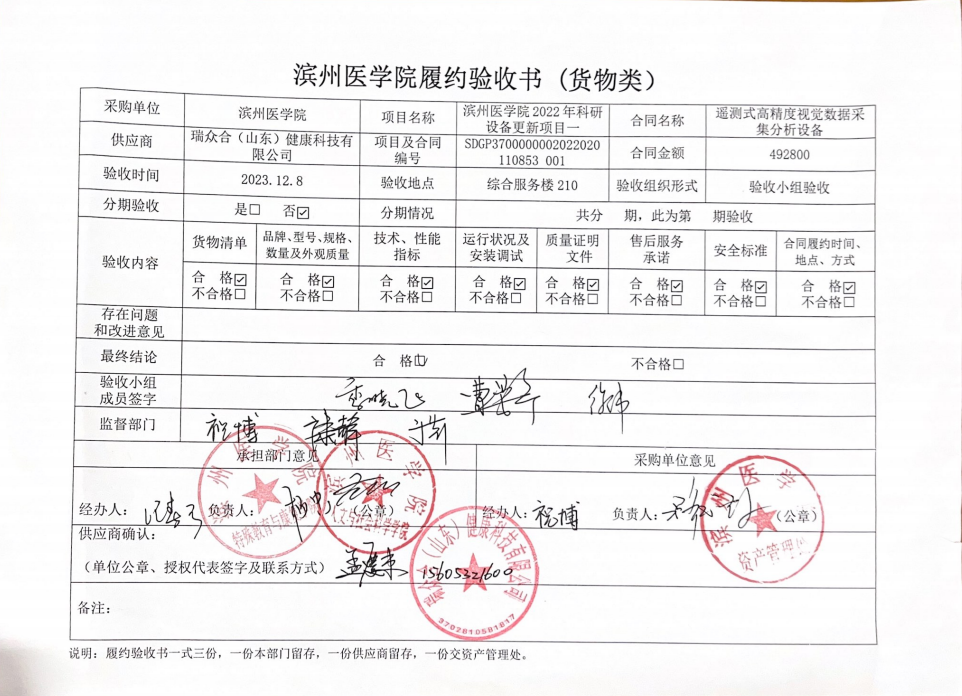 滨州医学院履约验收书（货物类）
采购单位 滨州医学院 项目名称 滨州医学院 2022 年科研设备更新项目一 合同名称 遥测式高精度视觉数据采集分析设备
供应商 瑞众合（山东）健康科技有限公司 项目及合同编号 SDGP3700000002022020110853 001 合同金额 492800
验收时间 2023.12.8 验收地点 综合服务楼 210 验收组织形式 验收小组验收
分期验收 是□ 否☑ 分期情况 共分 期，此为第 期验收
验收内容 货物清单 品牌、型号、规格、数量及外观质量 技术、性能指标 运行状况及安装调试 质量证明文件 售后服务承诺 安全标准 合同履约时间、地点、方式
合 格☑ 合 格☑ 合 格☑ 合 格☑ 合 格☑ 合 格☑ 合 格☑ 合 格☑
不合格□ 不合格□ 不合格□ 不合格□ 不合格□ 不合格□ 不合格□ 不合格□
存在问题和改进意见
最终结论 合 格☑ 不合格□
验收小组成员签字 李晓飞
监督部门 祝博
承担部门意见 采购单位意见
经办人： 负责人： （公章） 经办人：祝博 负责人： （公章）
滨州医学院
滨州医学院
人文与社会科学学院
滨州医学
资产管理
供应商确认：
（单位公章、授权代表签字及联系方式） 孟庆东 15605321600
瑞众合（山东）健康科技有限公司
3702810581817
备注：
说明：履约验收书一式三份，一份本部门留存，一份供应商留存，一份交资产管理处。